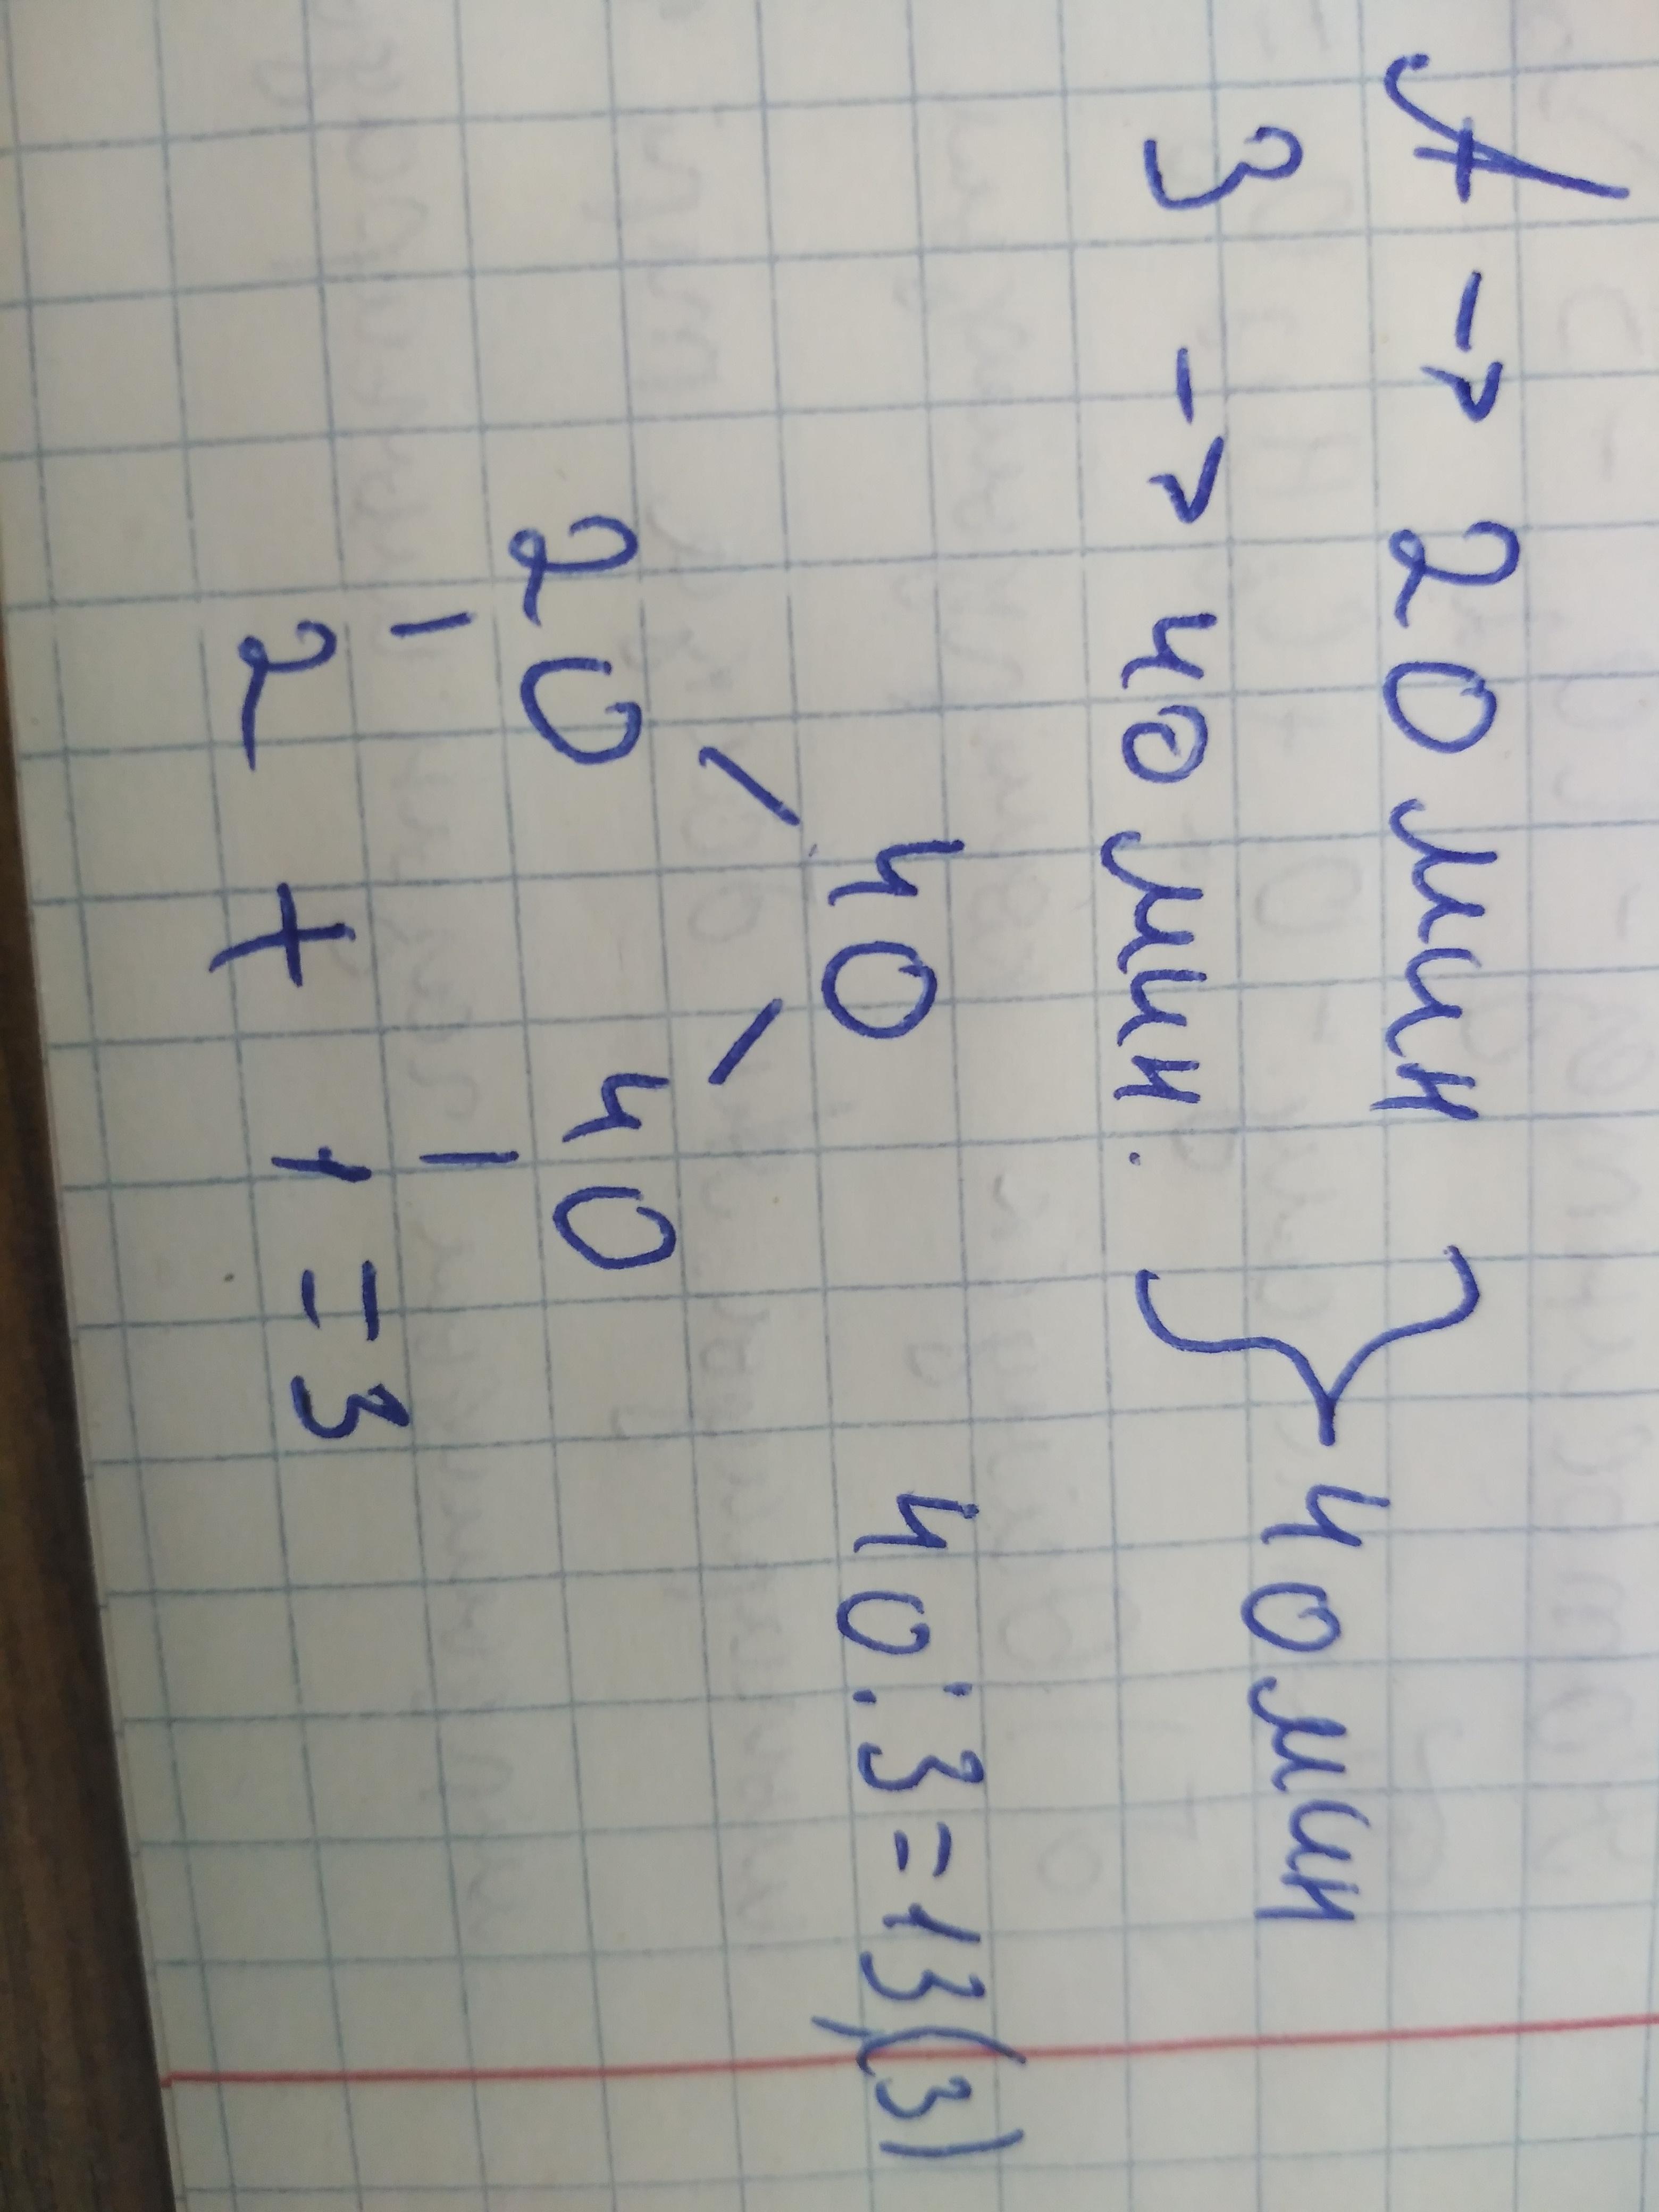 А → 20 мин
З → 40 мин.
} 40 мин
40
20 40
2 + 1 = 3
40 : 3 = 13,(3)